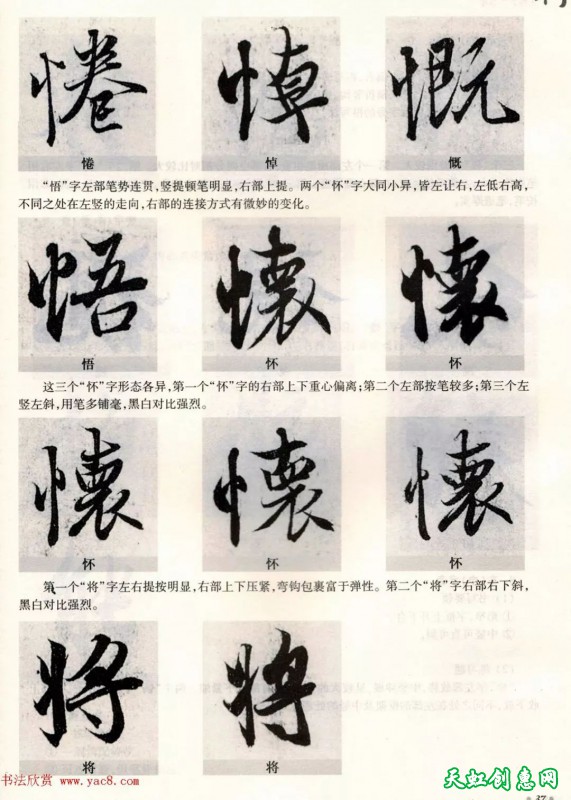 倦 悼 慨
“悟”字左部笔势连贯，竖提顿笔明显，右部上提。两个“怀”字大同小异，皆左让右，左低右高，
不同之处在左竖的走向，右部的连接方式有微妙的变化。
悟 懷 懷
悟 怀 怀
这三个“怀”字形态各异，第一个“怀”字的右部上下重心偏离；第二个左部按笔较多；第三个左
竖左斜，用笔多铺毫，黑白对比强烈。
懷 懷 懷
怀 怀 怀
第一个“将”字左右提按明显，右部上下压紧，弯钩包裹富于弹性。第二个“将”字右部右下斜，
黑白对比强烈。
将 将
将 将
书法欣赏 www.yac8.com
天虹创意网
37